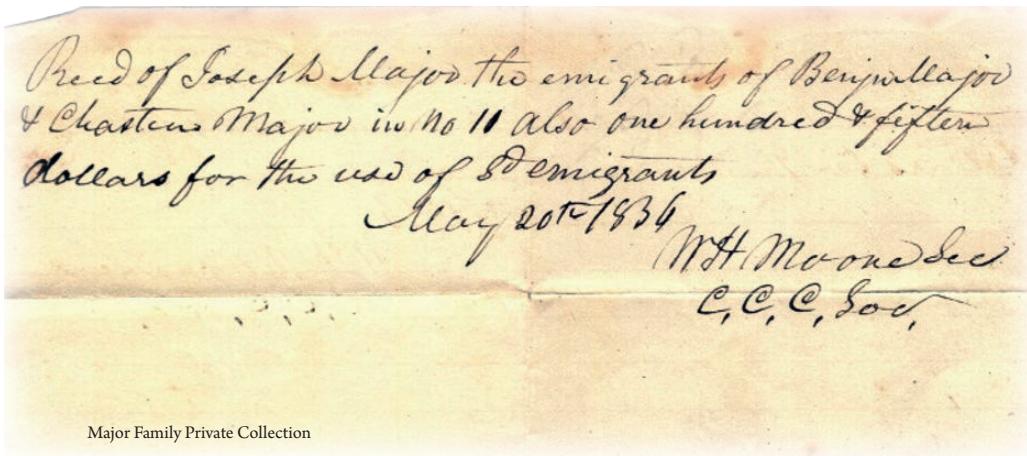 Recd of Joseph Major the emigrants of Benjn Major
& Chasten Major in No 11 also one hundred & fifteen
dollars for the use of sd emigrants
May 20th 1836
WH Moore Sec
C, C, C, Soc,
Major Family Private Collection